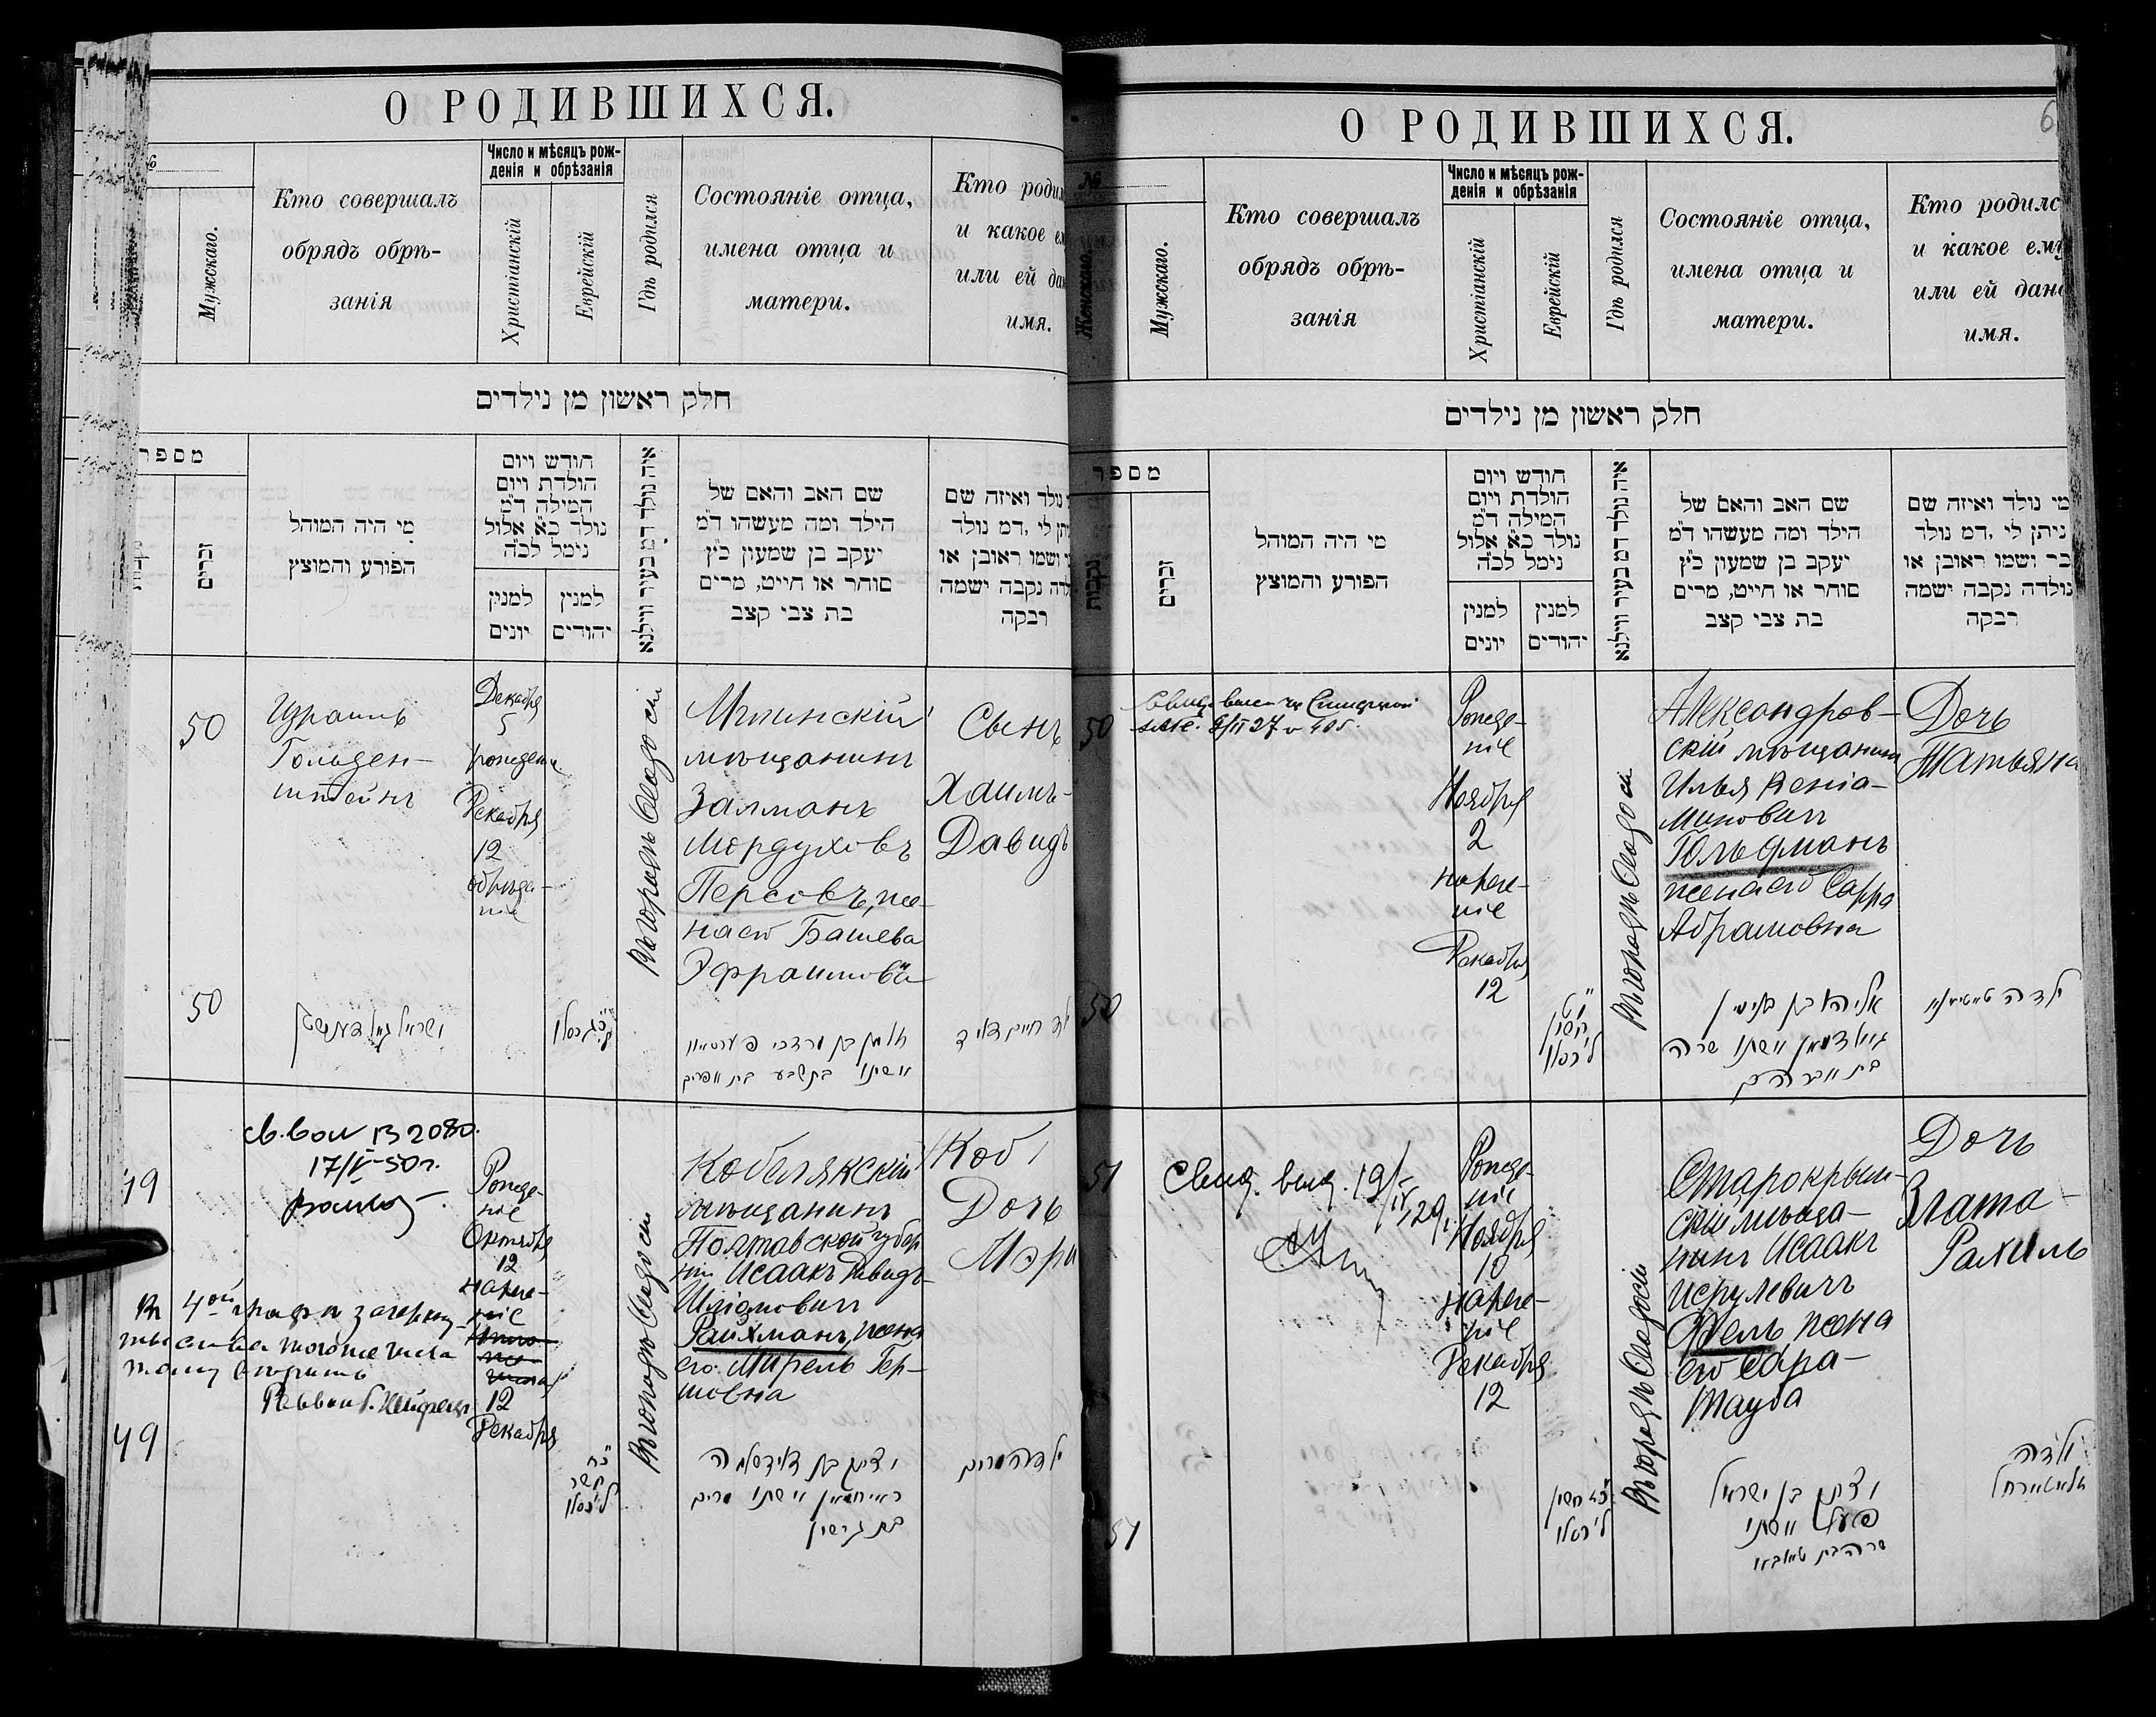 О РОДИВШИХСЯ.
№
Мужскаго.
Кто совершалъ
обрядъ обрѣ-
занія
Число и мѣсяцъ рож-
денія и обрѣзанія
Христіанскій
Еврейскій
Гдѣ родился
Состояніе отца,
имена отца и
матери.
Кто родил
и какое е
или ей да
имя.
חלק ראשון מן נילדים
מספר
זכרים
מי היה המוהל
הפורע והמוצץ
חודש ויום
הולדת ויום
המילה ד״מ
נולד כ״א אלול
נימל לכ״ה
למנין
יונים
למנין
יהודים
איה נולד דמ בעיר ווילנא
שם האב והאם של
הילד ומה מעשהו ד״מ
יעקב בן שמעון כ״ץ
סוחר או חייט, מרים
בת צבי קצב
נולד ואיזה שם
יתן לי, דמ נולד
י ושמו ראובן או
לדה נקבה ישמה
רבקה
50
Израиль
Гольден-
штейнъ
Декабря
5
рожденіе
Декабря
12
обрѣза-
ніе
Въ городѣ Ѳеодосіи
Мглинскій
мѣщанинъ
Залманъ
Мордуховъ
Персовъ, же-
на его Башева
Эфраимовна
Сынъ
Хаимъ-
Давидъ
50
ישראל גאלדענשטיין
זלמן בן מרדכי פערסאוו
ואשתו בתשבע בת אפרים
ילד חיים דוד
49
св. выд. В 2080.
17/V-50 г.
Рожде-
ніе
Октября
12
нарече-
ніе
12
Декабря
Въ городѣ Ѳеодосіи
Кобелякскій
мѣщанинъ
Полтавской губер
ніи Исаакъ Давидъ
Шліомовичъ
Райхманъ, жена
его Мирель Гер-
шовна
Коб
Дочь
Мэри
Въ 4ой графѣ зачеркну-
тыя слова того же числа
не читать
Раввинъ
49
יצחק בן דוד שלמה
רייכמאן ואשתו מרים
בת גרשון
ילדה מרים
О РОДИВШИХСЯ.
6
№
Женскаго.
Мужскаго.
Кто совершалъ
обрядъ обрѣ-
занія
Число и мѣсяцъ рож-
денія и обрѣзанія
Христіанскій
Еврейскій
Гдѣ родился
Состояніе отца,
имена отца и
матери.
Кто родилс
и какое ему
или ей дано
имя.
חלק ראשון מן נילדים
מספר
נקבות
זכרים
מי היה המוהל
הפורע והמוצץ
חודש ויום
הולדת ויום
המילה ד״מ
נולד כ״א אלול
נימל לכ״ה
למנין
יונים
למנין
יהודים
איה נולד דמ בעיר ווילנא
שם האב והאם של
הילד ומה מעשהו ד״מ
יעקב בן שמעון כ״ץ
סוחר או חייט, מרים
בת צבי קצב
מי נולד ואיזה שם
ניתן לי, דמ נולד
בר ושמו ראובן או
נולדה נקבה ישמה
רבקה
50
Рожде-
ніе
Ноября
2
нарече-
ніе
Декабря
12
Въ городѣ Ѳеодосіи
Александров-
скій мѣщанинъ
Илья Веніа-
миновичъ
Гольфманъ
жена его Сарра
Абрамовна
Дочь
Татьяна
50
אליהו בן בנימין
ואשתו שרה
בת אברהם
ילדה
51
Свид. выд. 19/IV 29 г.
Рожде-
ніе
Ноября
10
нарече-
ніе
Декабря
12
Въ городѣ Ѳеодосіи
Старокрым-
скій мѣща-
нинъ Исаакъ
Исрулевичъ
жена
его Сарра-
Тауба
Дочь
Злата-
Рахиль
51
יצחק בן ישראל
ואשתו
ילדה